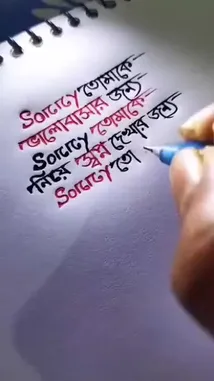 Sorry তোমাকে
ভালোবাসার জন্য
Sorry তোমাকে
নিয়ে স্বপ্ন দেখার জন্য
Sorry তো